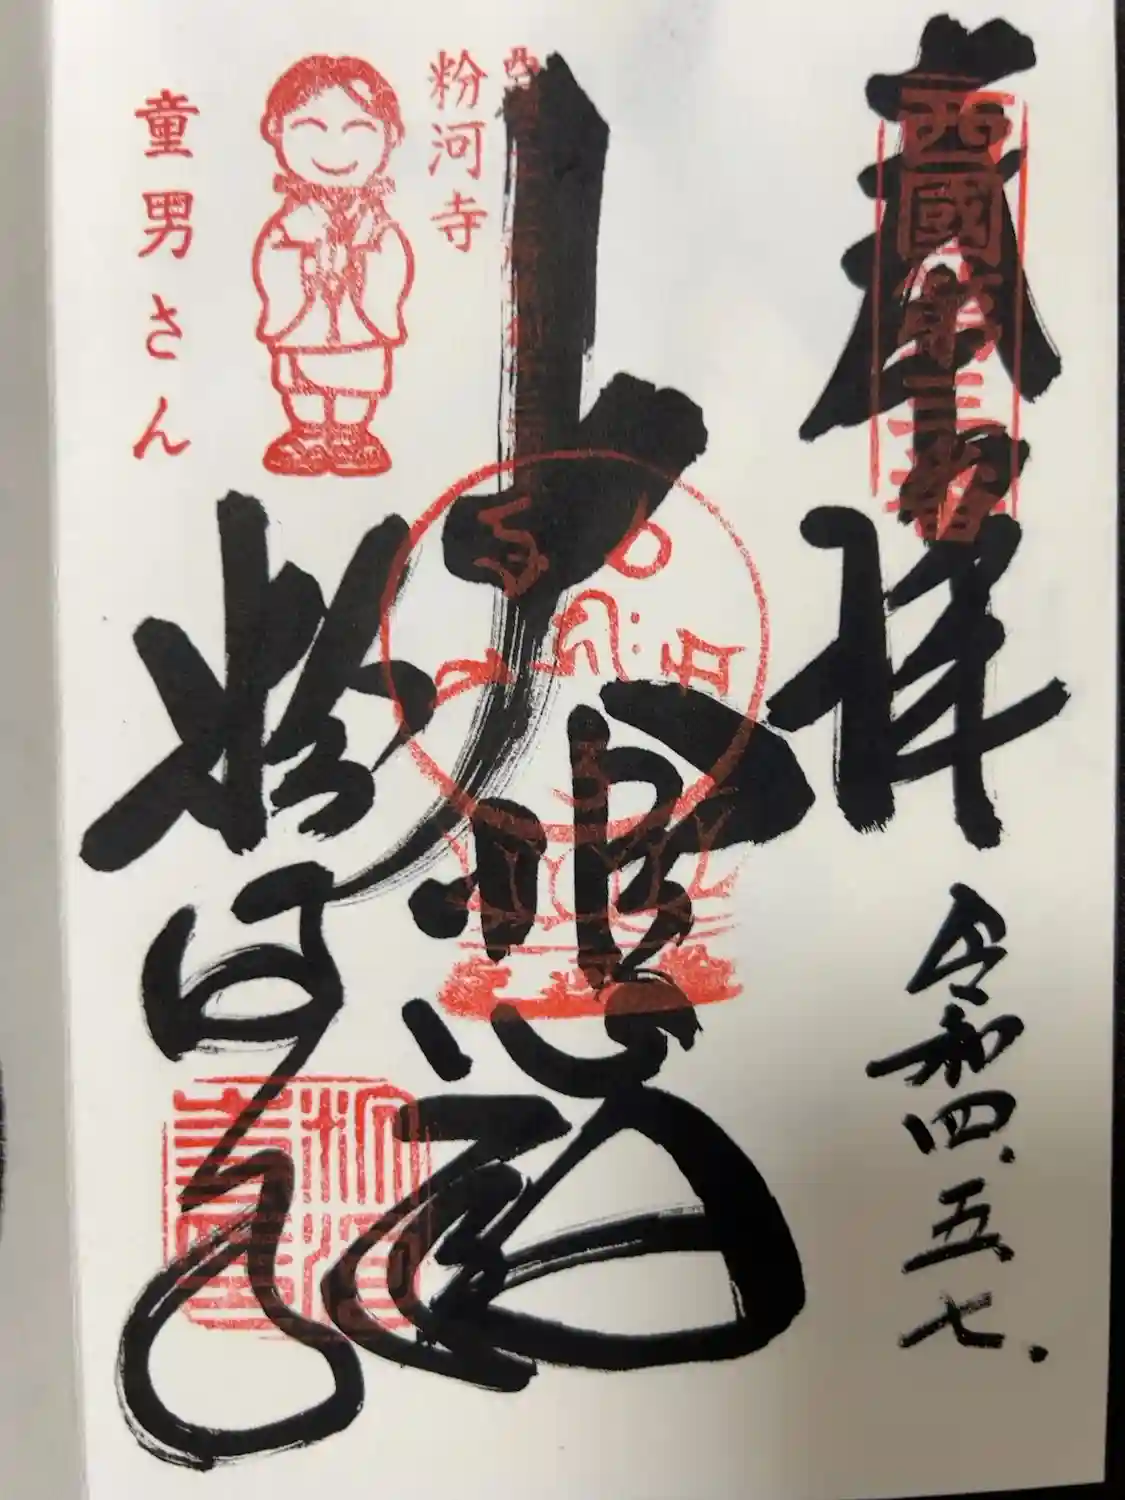 奉拝
西國第三番
令和四、五、七、
大悲殿
粉河寺
粉河寺
童男さん